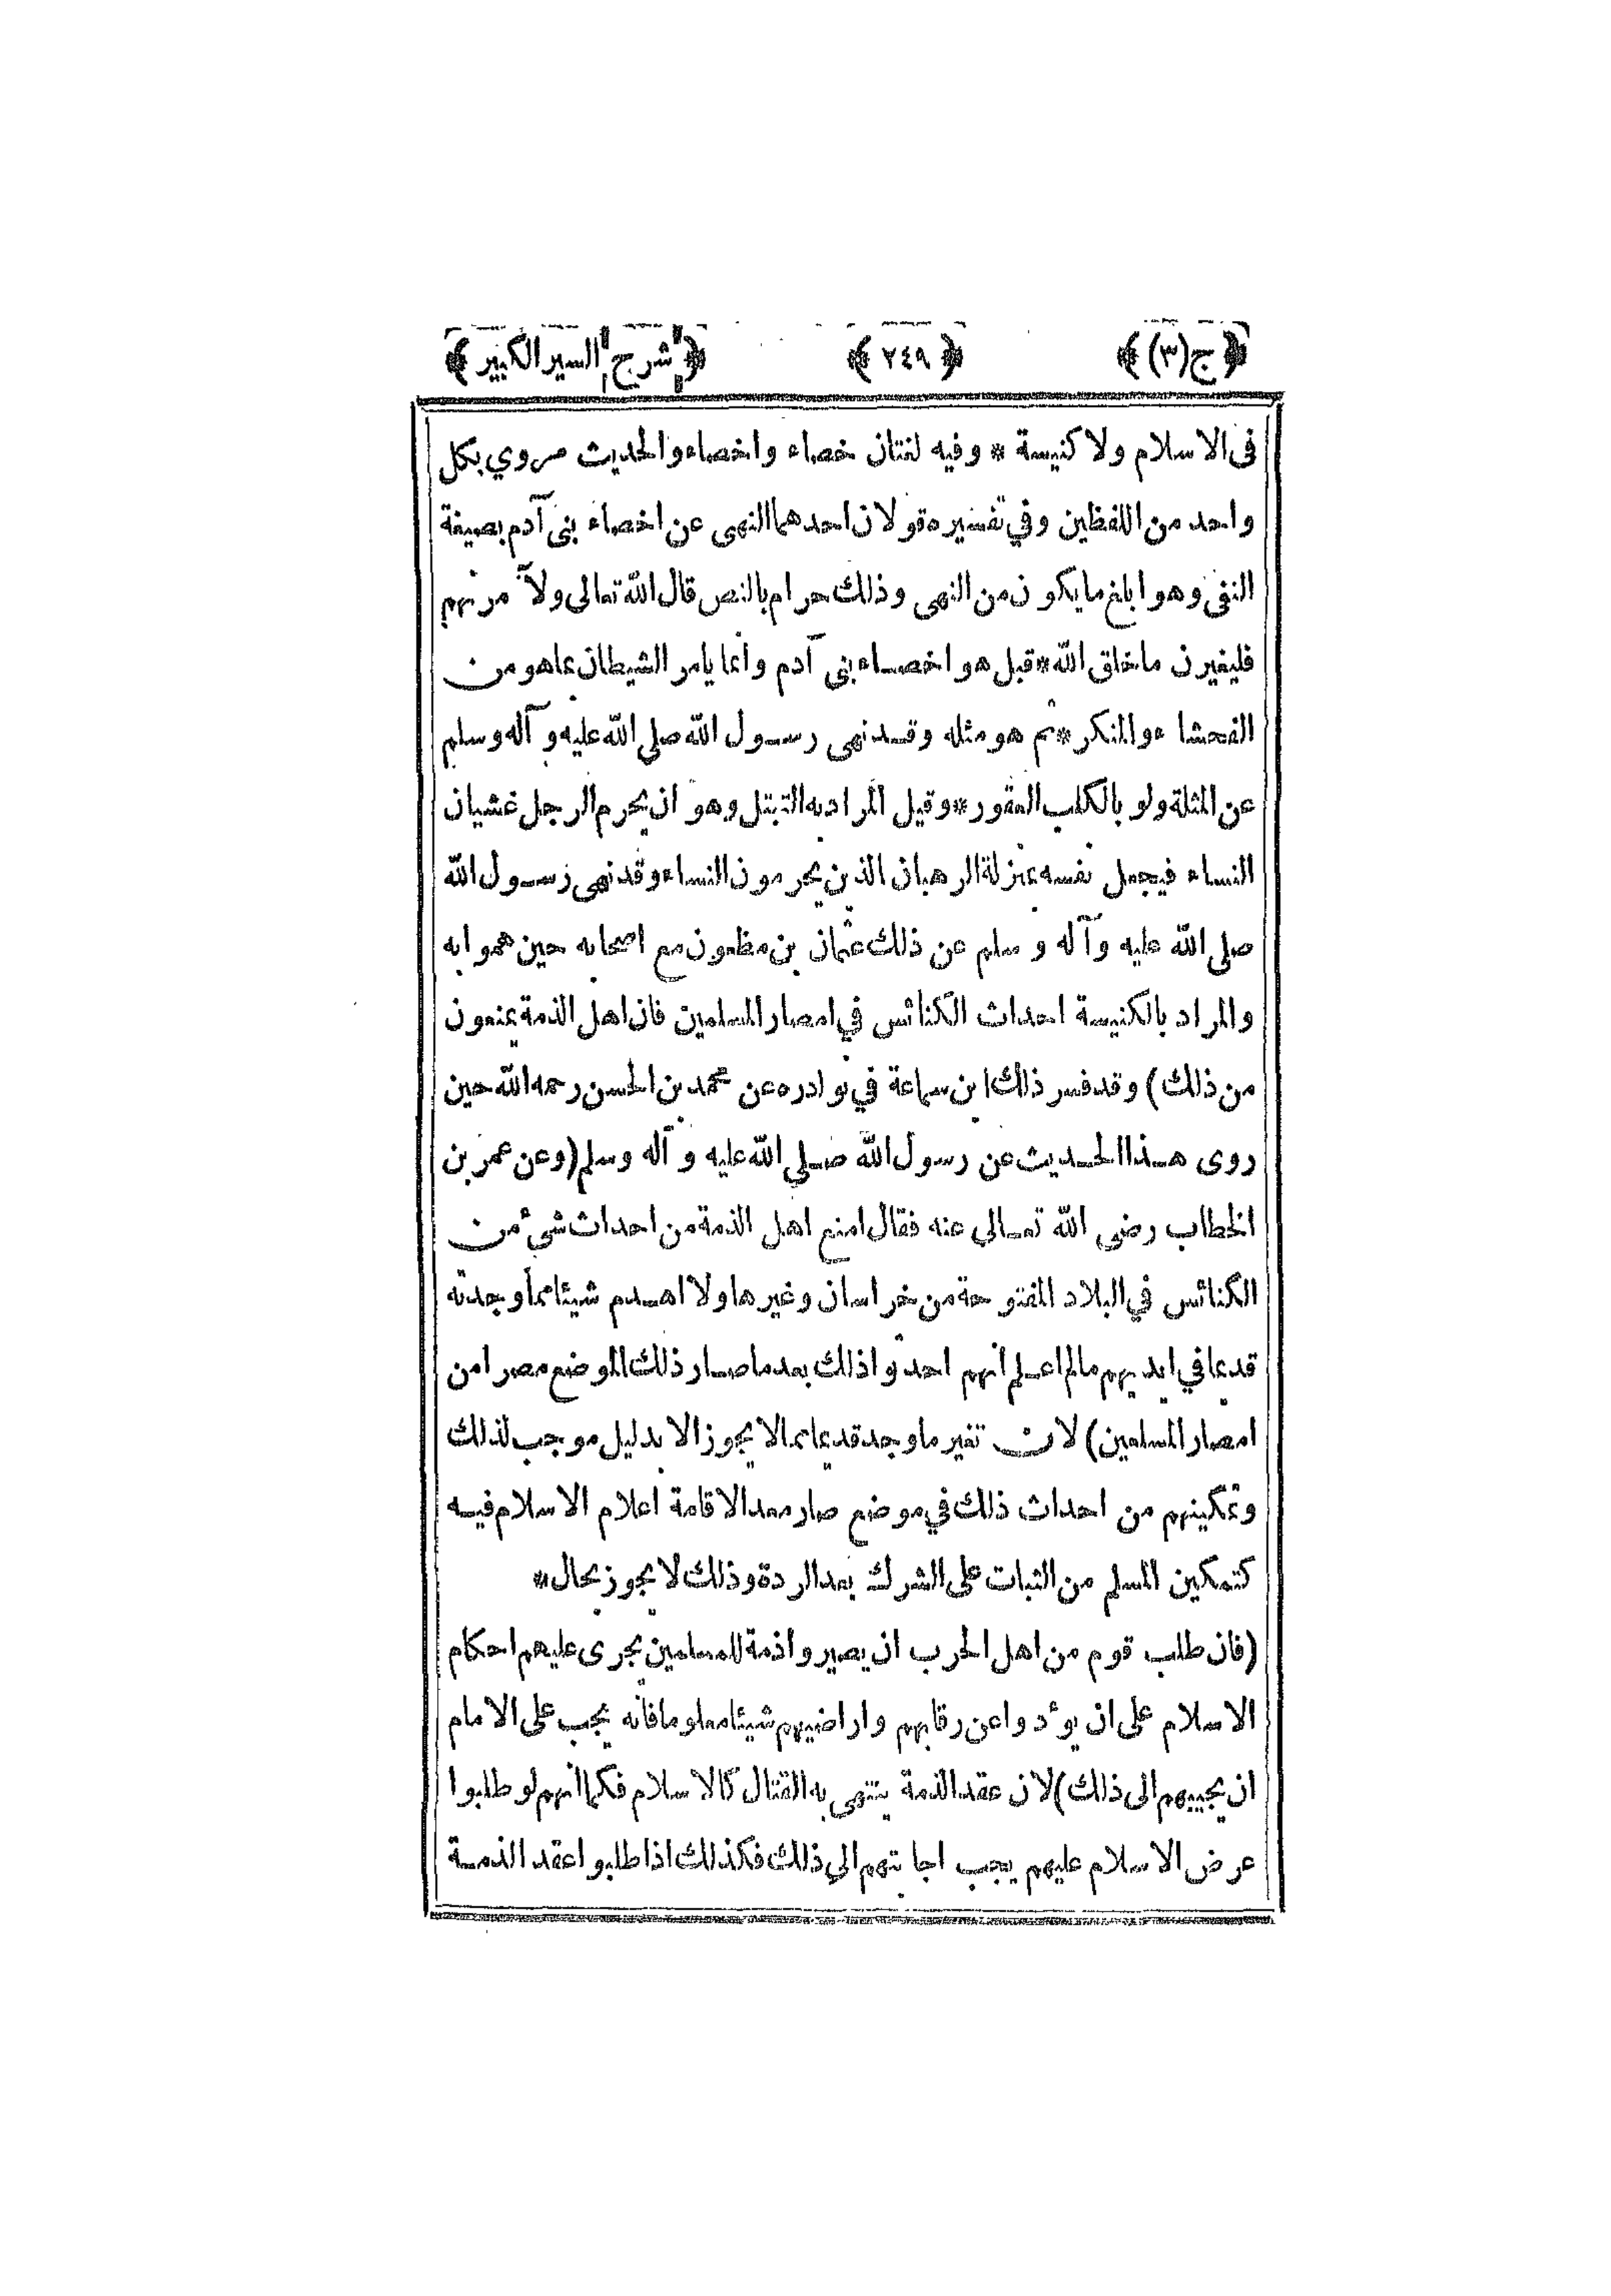 ﴿ج(٣)﴾ ﴿٢٤٩﴾ ﴿شرح السير الكبير﴾
فى الاسلام ولا كنيسة * وفيه لغتان خصاء واخصاء والحديث مروي بكل
واحد من اللفظين وفي تفسيره قولان احدهما النهى عن اخصاء بنى آدم بصيغة
النفى وهو ابلغ مايكون من النهى وذلك حرام بالنص قال الله تعالى ولآ مرنهم
فليغيرن ماخلق الله * قيل هو اخصاء بنى آدم وانما يامر الشيطان بما هو من
الفحشاء والمنكر * ثم هو مثله وقد نهى رسول الله صلى الله عليه و آله وسلم
عن المثلة ولو بالكلب العقور * وقيل المراد به التبتل وهو ان يحرم الرجل غشيان
النساء فيجعل نفسه بمنزلة الرهبان الذين يحرمون النساء وقد نهى رسول الله
صلى الله عليه وآله وسلم عن ذلك عثمان بن مظعون مع اصحابه حين هموا به
والمراد بالكنيسة احداث الكنائس في امصار المسلمين فان اهل الذمة يمنعون
من ذلك) وقد فسر ذلك ابن سماعة في نوادره عن محمد بن الحسن رحمه الله حين
روى هذا الحديث عن رسول الله صلى الله عليه و آله وسلم (وعن عمر بن
الخطاب رضى الله تعالي عنه فقال امنع اهل الذمة من احداث شئ من
الكنائس في البلاد المفتوحة من خراسان وغيرها ولا اهدم شيئا مما وجدته
قديما في ايديهم مالم اعلم انهم احدثوا ذلك بعد ماصار ذلك الموضع مصرا من
امصار المسلمين) لان تغير ماوجد قديما مما لا يجوز الا بدليل موجب لذلك
وتمكينهم من احداث ذلك في موضع صار معدا لاقامة اعلام الاسلام فيه
كتمكين المسلم من الثبات على الشرك بعد الردة وذلك لا يجوز بحال *
(فان طلب قوم من اهل الحرب ان يصيروا ذمة للمسلمين يجرى عليهم احكام
الاسلام على ان يوٴدوا عن رقابهم واراضيهم شيئا معلوما فانه يجب على الامام
ان يجيبهم الى ذلك) لان عقد الذمة ينتهى به القتال كالاسلام فكما انهم لو طلبوا
عرض الاسلام عليهم يجب اجابتهم الي ذلك فكذلك اذا طلبوا عقد الذمة